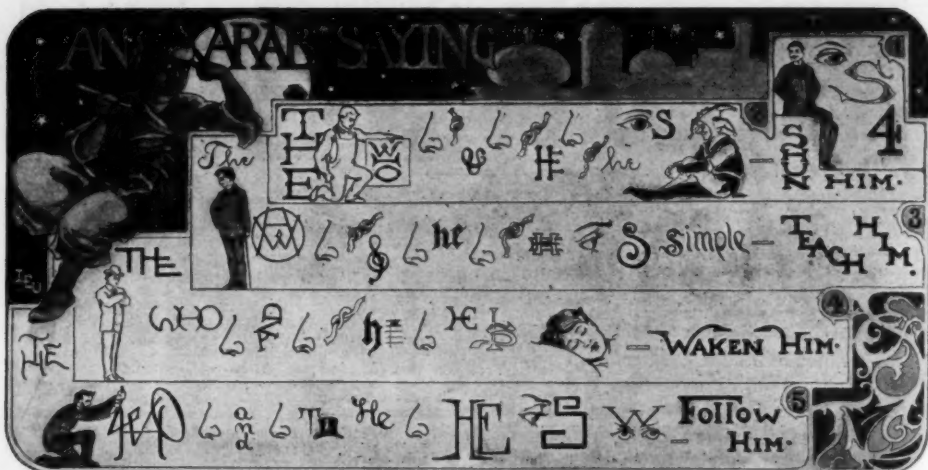 AN ARAB SAYING
1
S
4
2
THE WHO & HE he S — SHUN HIM.
3
The WHO & he HE S Simple — TEACH HIM.
4
THE WHO AND he HE IS — WAKEN HIM.
5
THE WHO and He HE S W — Follow HIM.